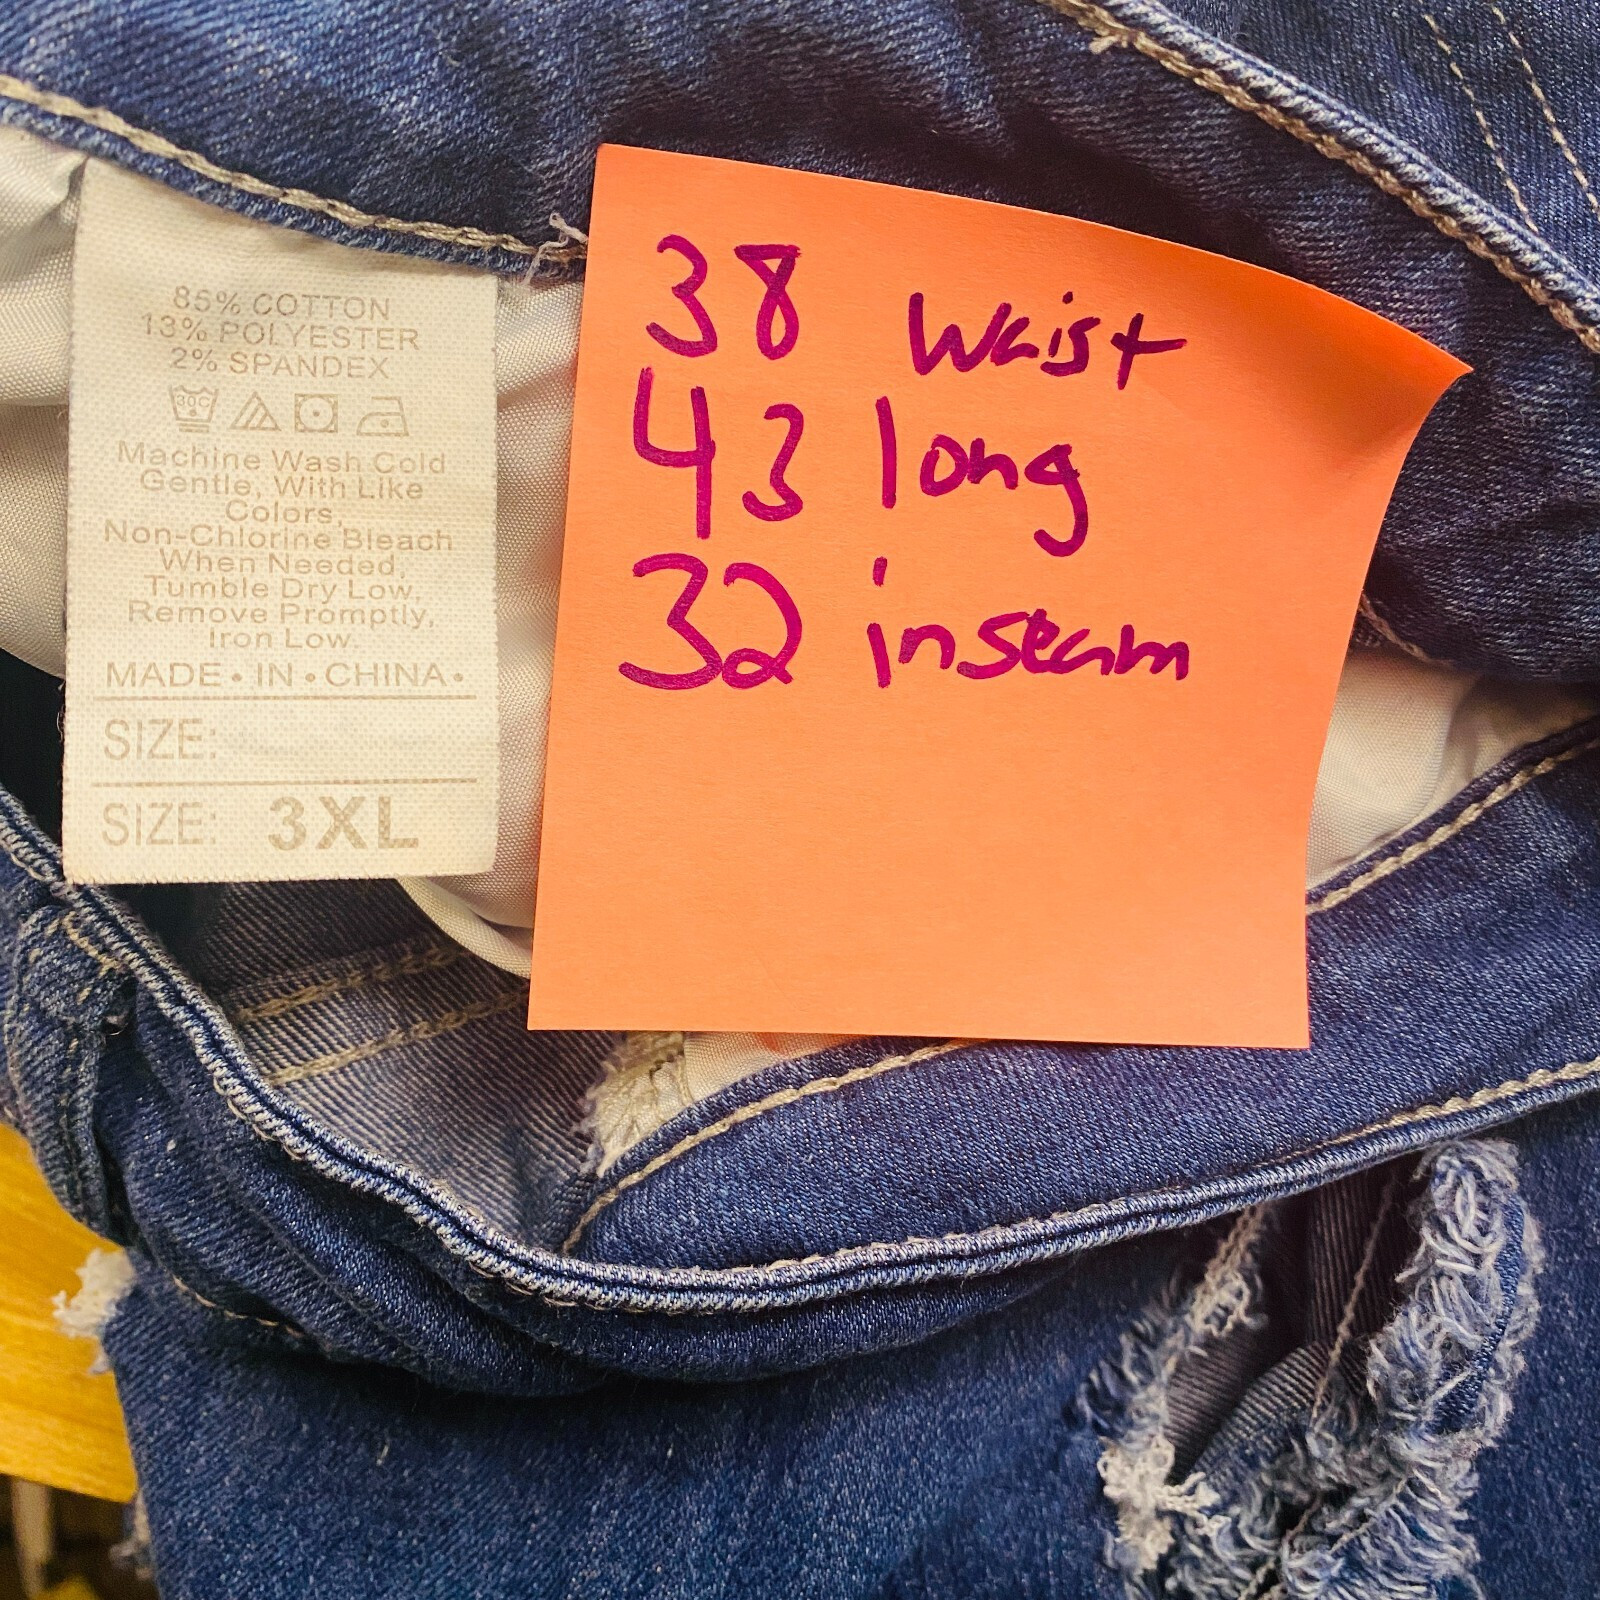 85% COTTON
13% POLYESTER
2% SPANDEX
30C
Machine Wash Cold
Gentle, With Like
Colors,
Non-Chlorine Bleach
When Needed,
Tumble Dry Low,
Remove Promptly,
Iron Low
MADE • IN • CHINA •
SIZE:
SIZE: 3XL
38 waist
43 long
32 inseam